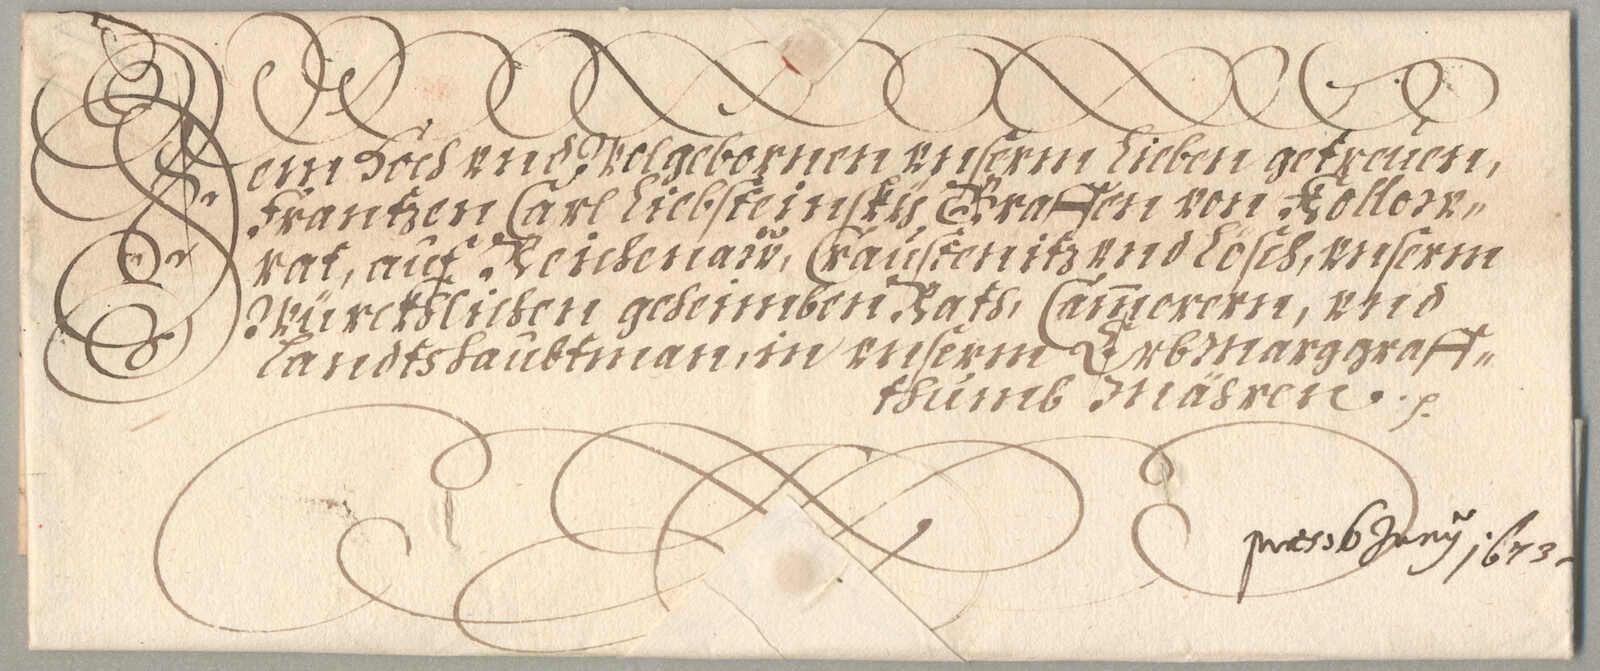 Dem Hoch vnd Wolgebornen vnserm Lieben getreuen,
Frantzen Carl Liebsteinsky Graffen von Kollow„
rat, auf Reichenaw, Craustenitz vnd Lösch, vnserm
Würckhlichen geheimben Rath, Cam̄erern, vnd
Landtshaubtman, in vnserm ErbMarggraff„
thumb Mähren. p.
præs 6 Juny 1673